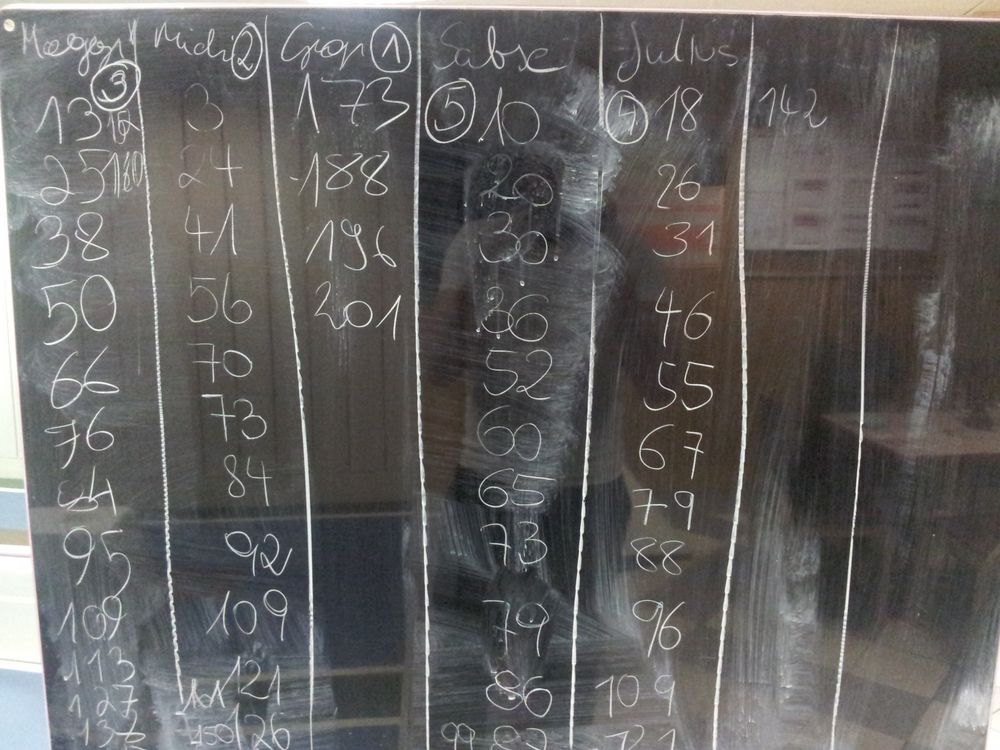 Michi ② Grop ① Sabse Julius
③
13 3 173 ⑤ 10 ④ 18 142
25 24 188 20 26
38 41 196 30 31
50 56 201 36 46
66 70 52 55
76 73 60 67
84 84 65 79
95 92 73 88
109 109 79 96
113 121 86 109
127 126 99 121